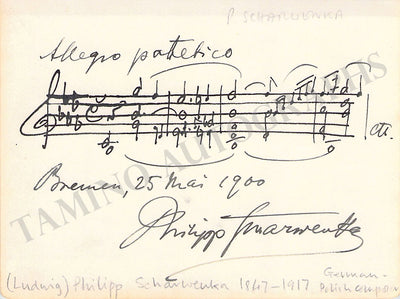 P SCHARWENKA
Allegro patetico
etc.
Bremen, 25 Mai 1900
Philipp Scharwenka
(Ludwig) Philipp Scharwenka 1847-1917
German-
Polish composer
TAMINO AUTOGRAPHS